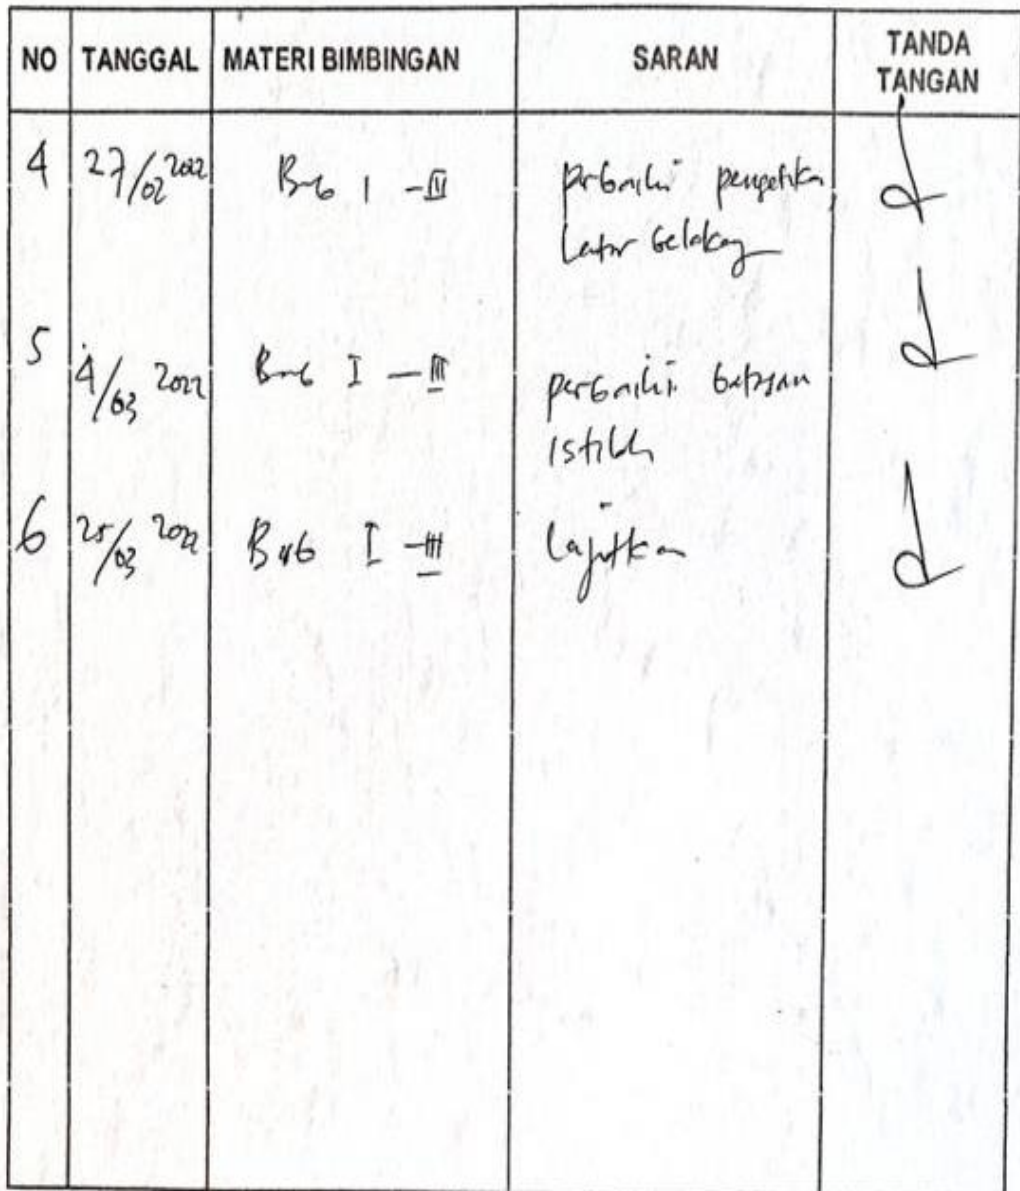 NO TANGGAL MATERI BIMBINGAN SARAN TANDA TANGAN
4 27/02 2022 Bab I - III perbaiki pengetikan,
latar belakang
5 4/03 2022 Bab I - III perbaiki batasan
istilah
6 25/03 2022 Bab I - III lanjutkan